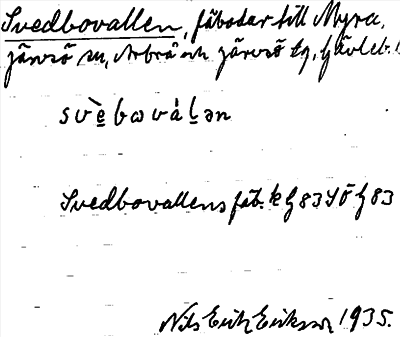 Svedbovallen, fäbodar till Myra,
Järvsö sn, Arbrå och Järvsö tg, Gävleb. l
svèbωválən
Svedbovallens fäb. k G 83 SÖ G 83
Nils Erik Eriksson 1935.